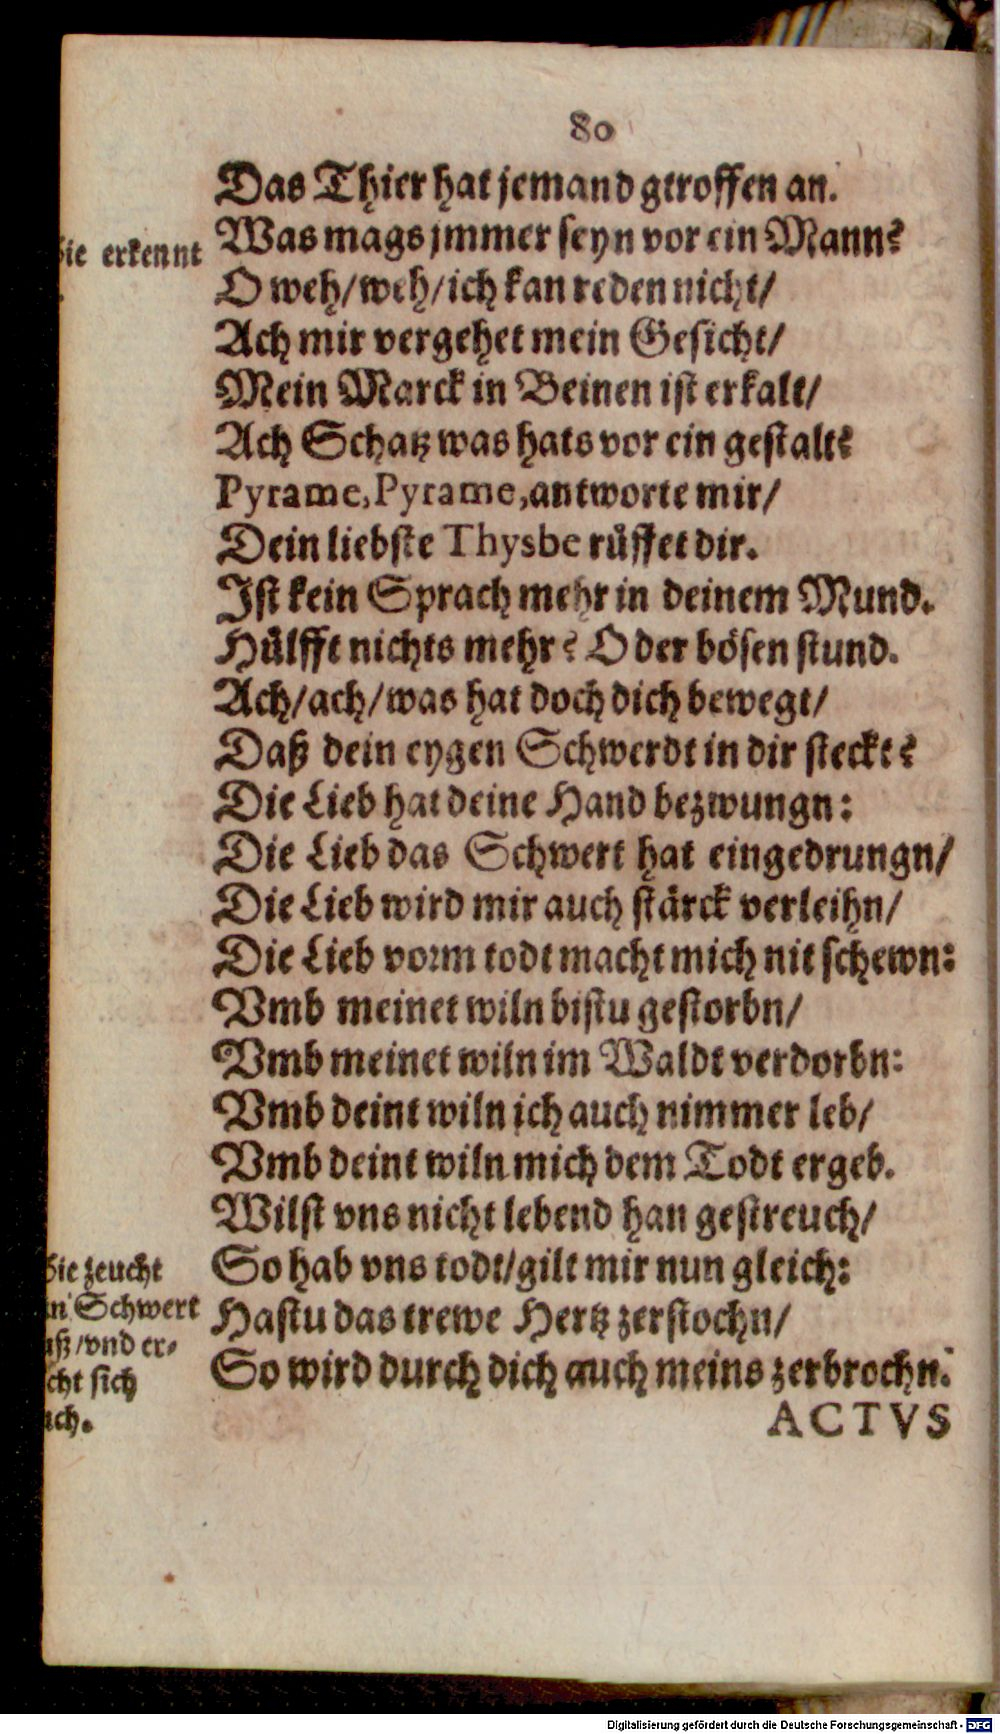 80
Das Thier hat jemand gtroffen an.
Was mags jmmer seyn vor ein Mann?
Sie erkennt
O weh/weh/ich kan reden nicht/
Ach mir vergehet mein Gesicht/
Mein Marck in Beinen ist erkalt/
Ach Schatz was hats vor ein gestalt?
Pyrame, Pyrame, antworte mir/
Dein liebste Thysbe rüffet dir.
Ist kein Sprach mehr in deinem Mund.
Hülfft nichts mehr? O der bösen stund.
Ach/ach/was hat doch dich bewegt/
Daß dein eygen Schwerdt in dir steckt?
Die Lieb hat deine Hand bezwungn:
Die Lieb das Schwert hat eingedrungn/
Die Lieb wird mir auch stärck verleihn/
Die Lieb vorm todt macht mich nit schewn:
Vmb meinet wiln bistu gestorbn/
Vmb meinet wiln im Waldt verdorbn:
Vmb deint wiln ich auch nimmer leb/
Vmb deint wiln mich dem Todt ergeb.
Wilst vns nicht lebend han gestreuch/
So hab vns todt/gilt mir nun gleich:
Hastu das trewe Hertz zerstochn/
So wird durch dich auch meins zerbrochn.
Sie zeucht
n Schwert
ß/vnd er-
cht sich
ch.
ACTVS
Digitalisierung gefördert durch die Deutsche Forschungsgemeinschaft - DFG